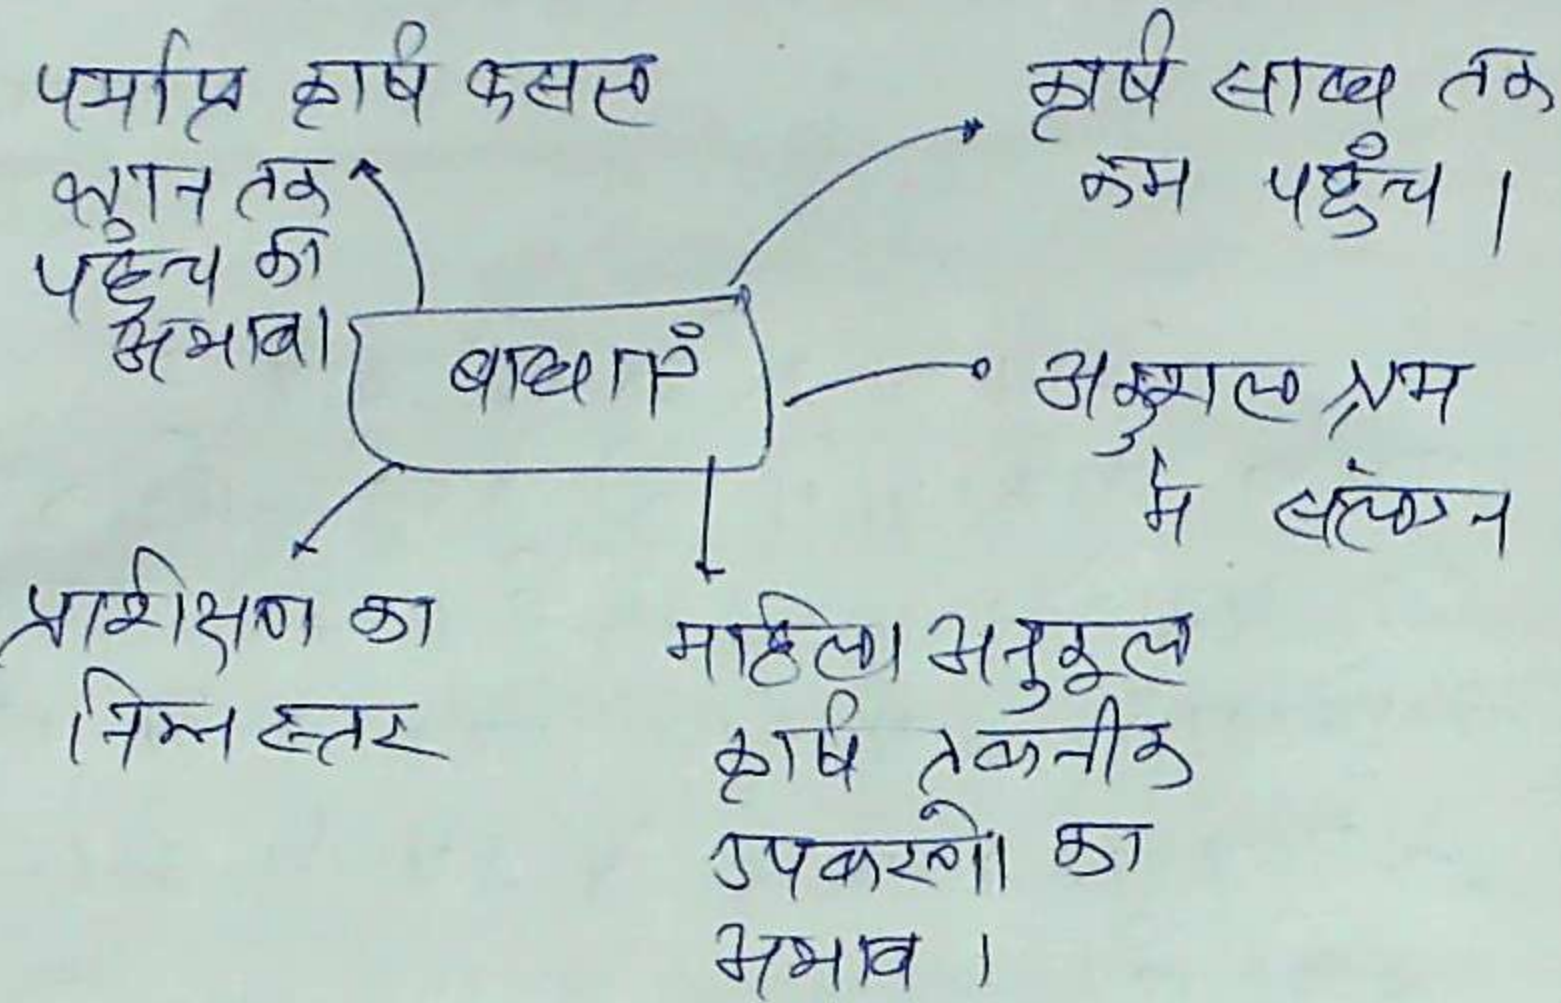 पर्याप्त कृषि फसल
ज्ञान तक
पहुंच की
अभाव।
कृषि साख तक
कम पहुँच ।
बाधाएं
अकुशल श्रम
में संलग्न
प्रशिक्षण का
निम्न स्तर
महिला अनुकूल
कृषि तकनीक
उपकरणों का
अभाव ।